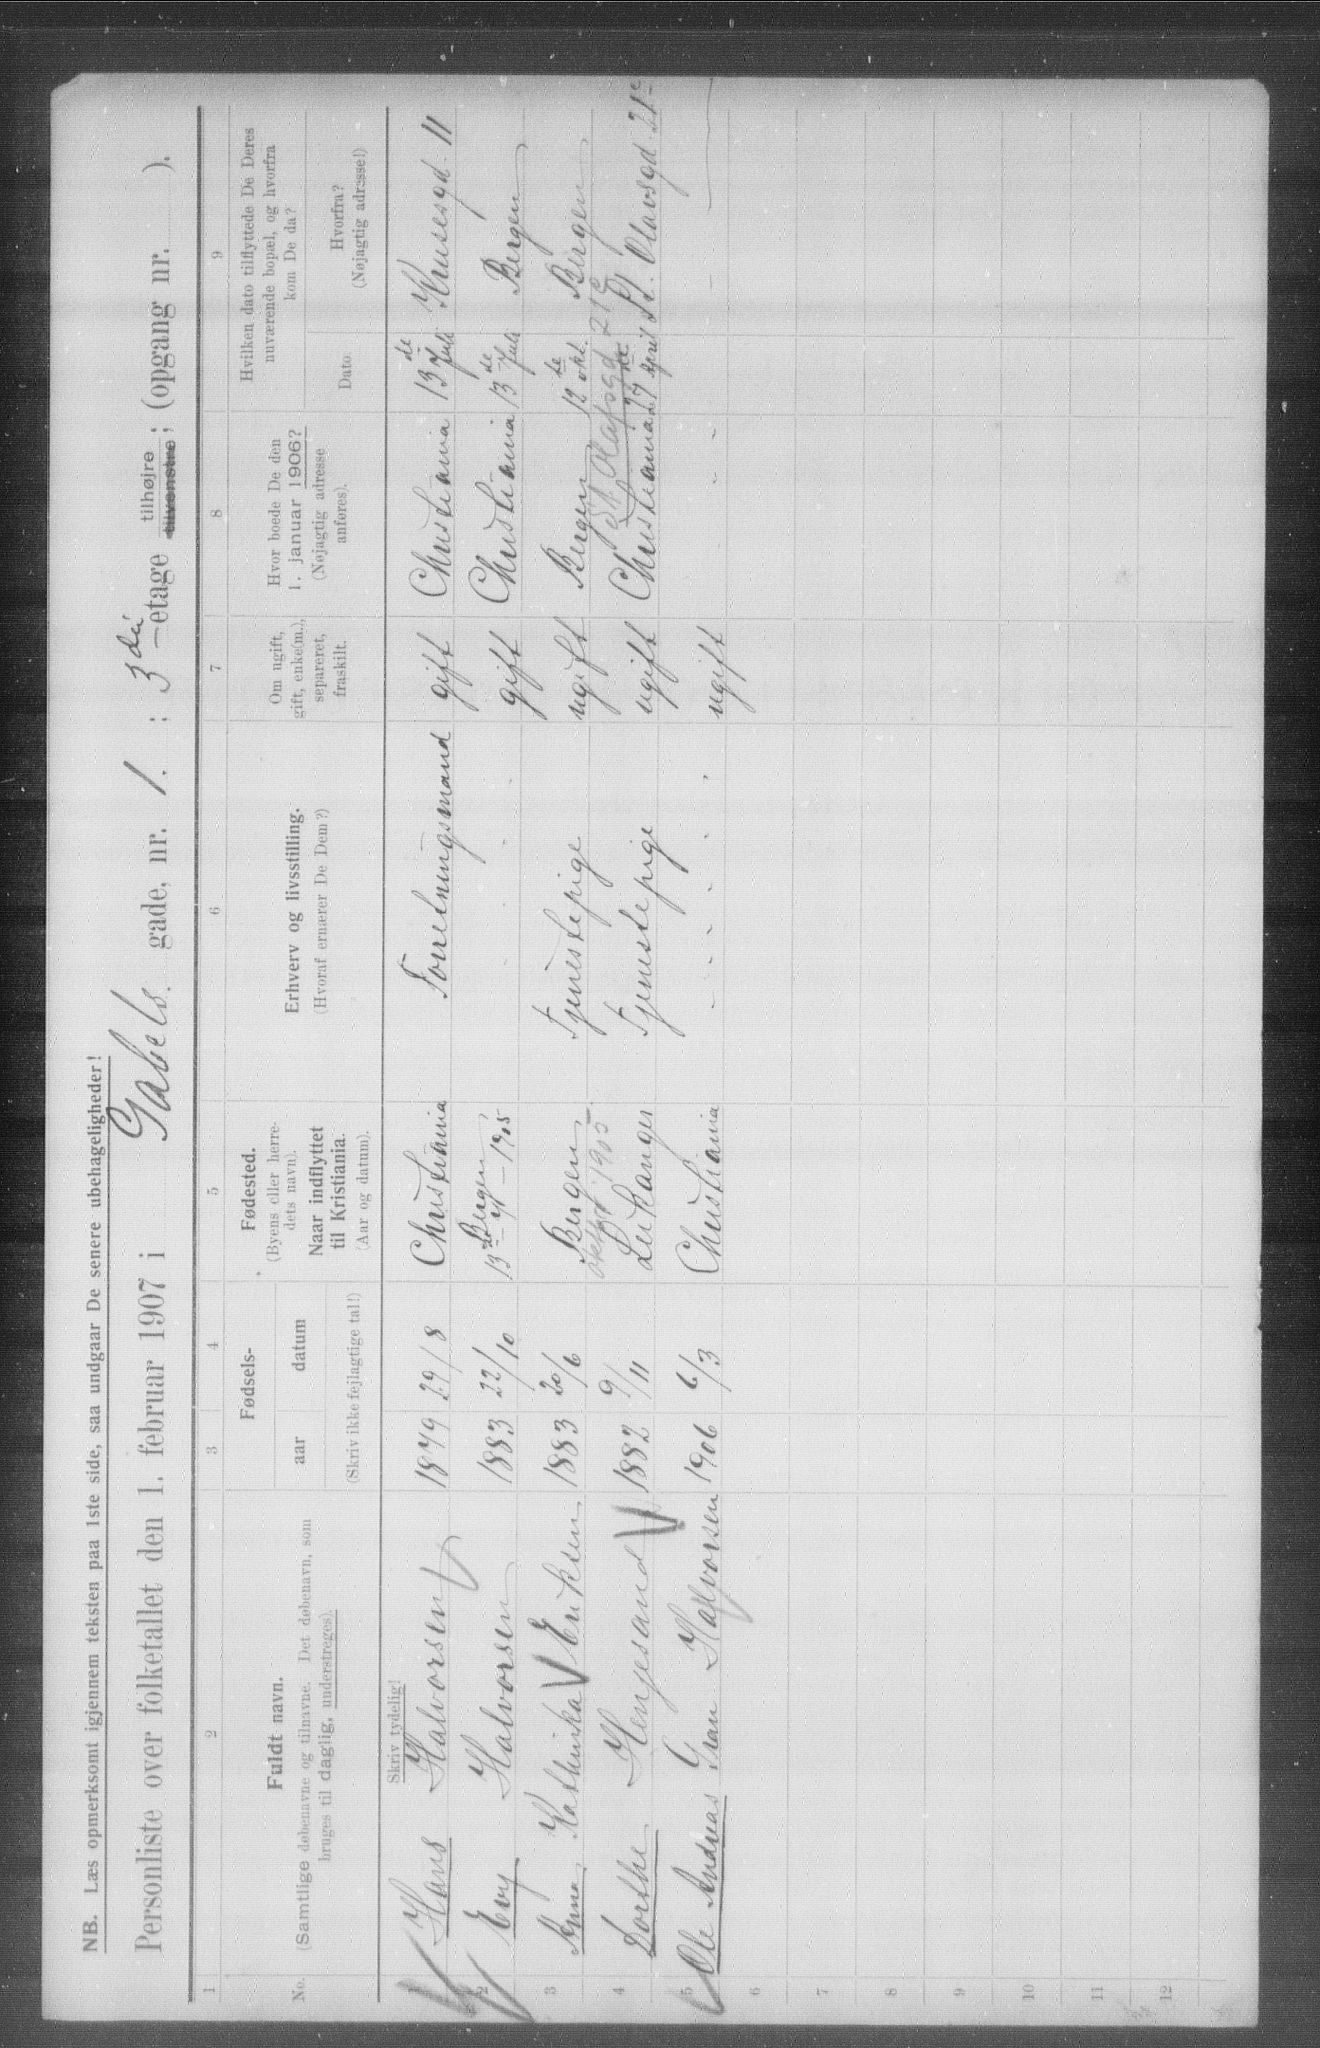 NB. Læs opmerksomt igjennem teksten paa 1ste side, saa undgaar De senere ubehageligheder!
Personliste over folketallet den 1. februar 1907 i Gabels gade, nr. 1. ; 3die -etage tilhøjre tilvenstre ; (opgang nr. ).
1 2 3 4 5 6 7 8 9
No.
Fuldt navn.
(Samtlige døbenavne og tilnavne. Det døbenavn, som
bruges til daglig, understreges).
Fødsels-
aar datum
(Skriv ikke fejlagtige tal!)
Fødested.
(Byens eller herre-
dets navn).
Naar indflyttet
til Kristiania.
(Aar og datum).
Erhverv og livsstilling.
(Hvoraf ernærer De Dem?)
Om ugift,
gift, enke(m.),
separeret,
fraskilt.
Hvor boede De den
1. januar 1906?
(Nøjagtig adresse
anføres).
Hvilken dato tilflyttede De Deres
nuværende bopæl, og hvorfra
kom De da?
Dato
Hvorfra?
(Nøjagtig adresse!)
Skriv tydelig!
1 Hans Halvorsen 1879 29/8 Christiania Forretningsmand gift Christiania 13de Juli Krusesgd. 11
2 Evy Halvorsen 1883 22/10 Bergen gift Christiania 13de Juli Bergen
13de 1905
3 Anna Kathinka Eriksen 1883 20/6 Bergen Tjenestepige ugift Bergen 12te okt. Bergen
oktbr 1905 St. Olafsgd 21c
4 Dorthe Henjesand 1882 9/11 Leikanger Tjenestepige ugift Christiania 27de april St. Olavsgd 21c
5 Ole Andreas Gran Halvorsen 1906 6/3 Christiania - - - - - ugift - - -
6
7
8
9
10
11
12